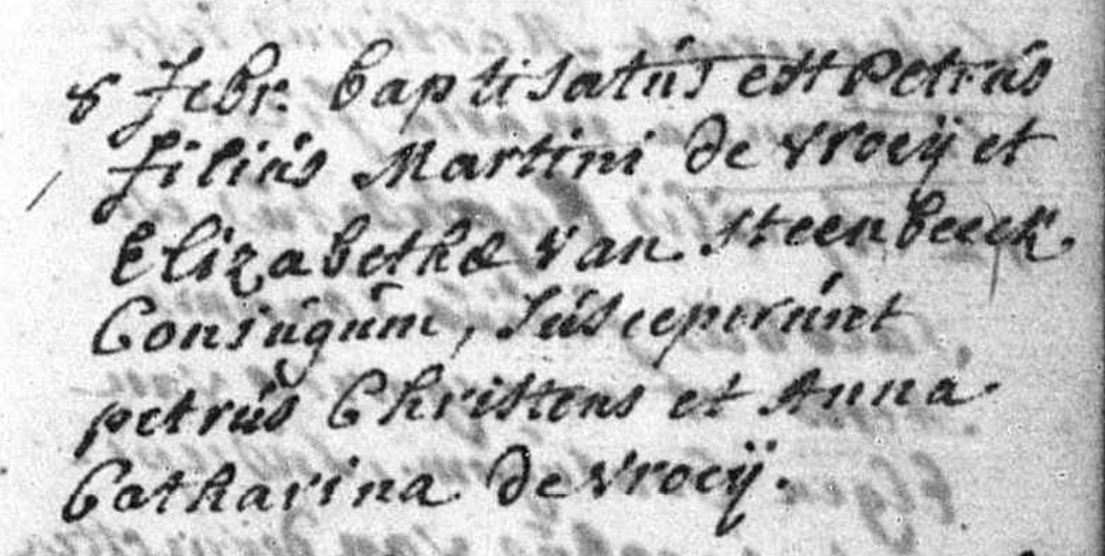 8 Febr. baptisatus est Petrus
filius Martini de vroeij et
Elizabethæ van steenbeeck
Coniugum, susceperunt
petrus Christens et Anna
Catharina de vroeij.